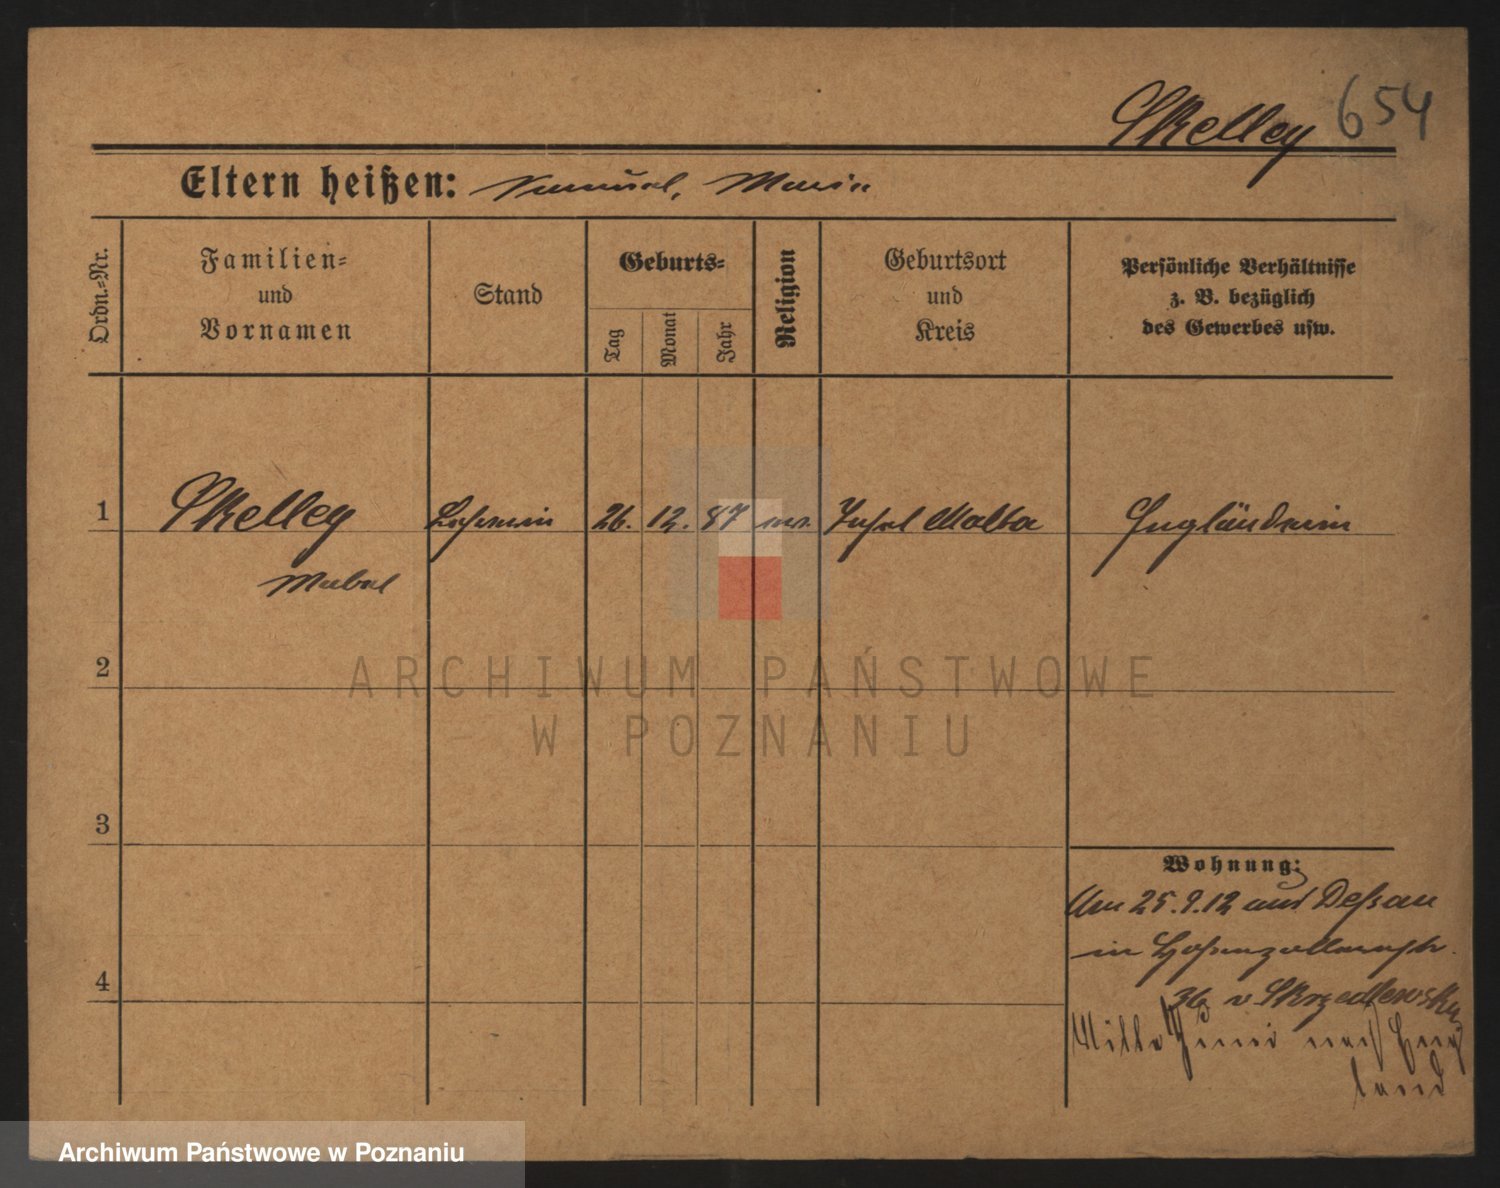 Skelley 654
Eltern heißen: Samuel, Maria
Ordn.-Nr.
Familien-
und
Vornamen
Stand
Geburts-
Tag
Monat
Jahr
Religion
Geburtsort
und
Kreis
Persönliche Verhältnisse
z. B. bezüglich
des Gewerbes usw.
1 Skelley Lehrerin 26. 12. 87 ev. Insel Malta Engländerin
Mabel
2
3
4
Wohnung:
Am 25.9.12 aus Dessau
in Hohenzollernstr.
36 v
Mitte Juni nach Eng
land
ARCHIWUM PAŃSTWOWE
W POZNANIU
Archiwum Państwowe w Poznaniu